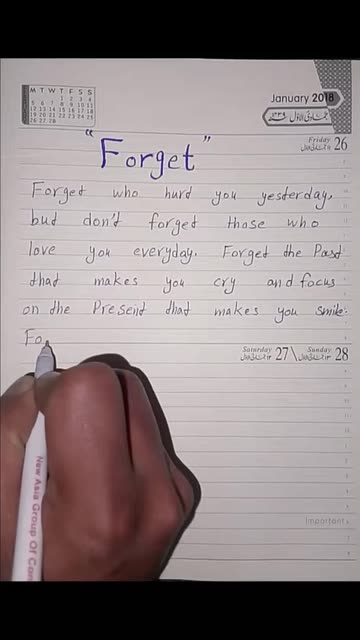 M T W T F S S
1 2 3 4
5 6 7 8 9 10 11
12 13 14 15 16 17 18
19 20 21 22 23 24 25
26 27 28
January 2018
Friday 26
"Forget"
Forget who hurt you yesterday,
but don't forget those who
love you everyday. Forget the Past
that makes you cry and focus
on the Present that makes you smile.
Fo
Saturday 27 \ Sunday 28
Important
New Asia Group Of Com